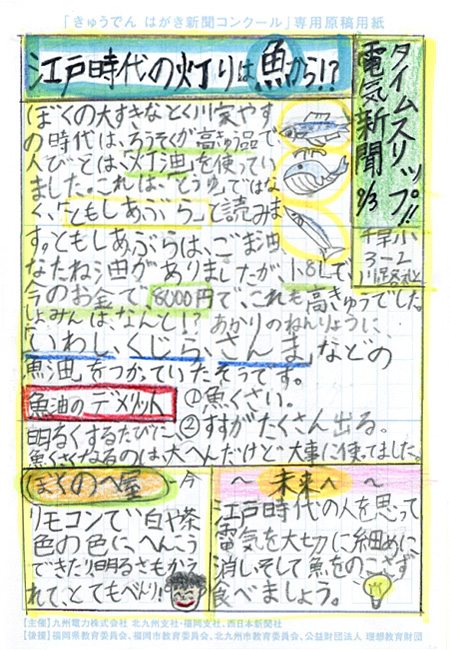 「きゅうでん はがき新聞コンクール」専用原稿用紙
タイムスリップ!!
電気新聞 9/3
千早小
3-2
江戸時代の灯りは魚から!?
ぼくの大すきなとく川家やす
の時代は、ろうそくが高きゅう品で、
人びとは、「灯油」を使ってい
ました。これは、「とうゆ」ではな
く、「ともしあぶら」と読みま
す。ともしあぶらは、ごま油
なたね油がありましたが、1.8Lで、
今のお金で8000円で、これも高きゅうでした。
しょみんは、なんと!?あかりのねんりょうに、
「いわし、くじら、さんま」などの
魚油をつかっていたそうです。
魚油のデメリット ①魚くさい。
明るくするたびに、②すすがたくさん出る。
魚くさくなるのは、大へんだけど大事に使ってました。
ぼくのへ屋 今
リモコンで白や茶
色の色に、へんこう
できたり、明るさもかえら
れて、とてもべんり!
～未来へ～
江戸時代の人を思って
電気を大切に細めに
消し、そして魚をのこさず
食べましょう。
【主催】九州電力株式会社 北九州支社・福岡支社、西日本新聞社
【後援】福岡県教育委員会、福岡市教育委員会、北九州市教育委員会、公益財団法人 理想教育財団